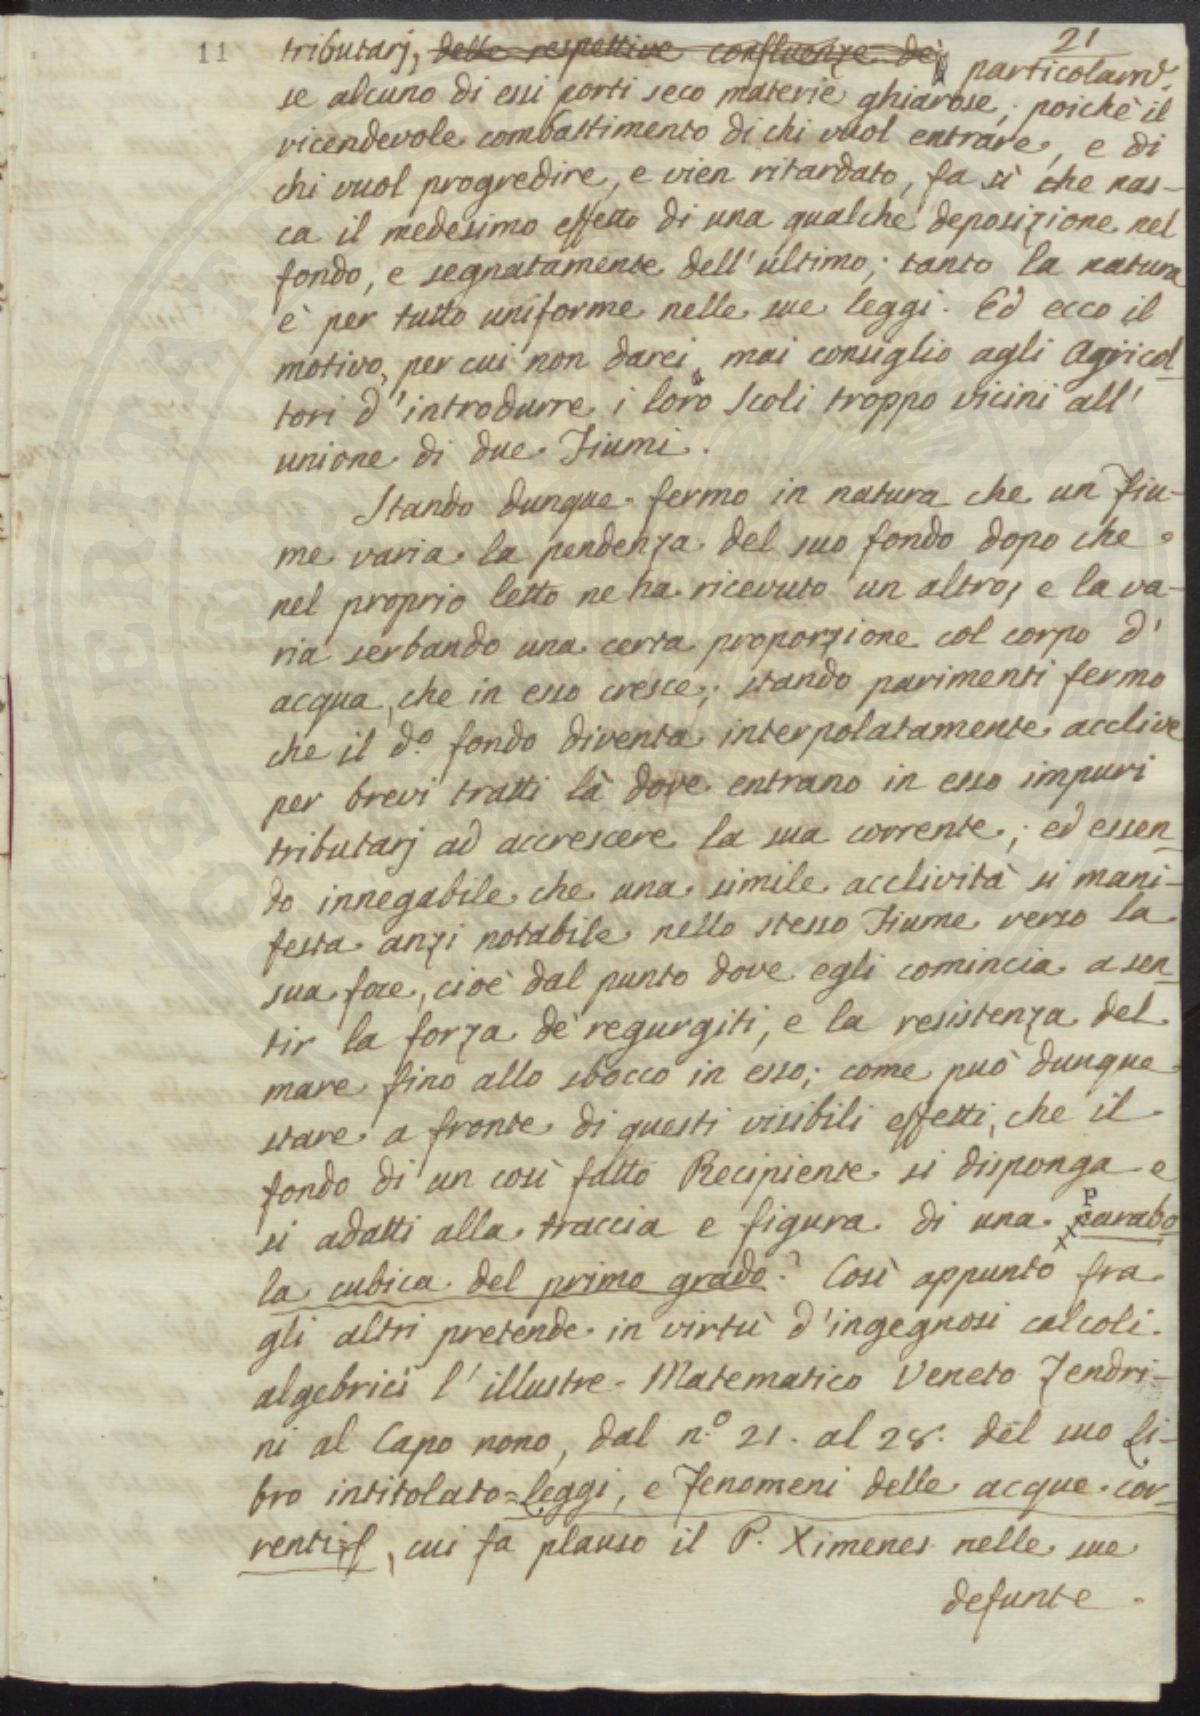 11
21
tributarj, delle respettive confluenze de' particolarm.e
se alcuno di essi porti seco materie ghiarose; poichè il
vicendevole combattimento di chi vuol entrare, e di
chi vuol progredire, e vien ritardato, fa sì che nas-
ca il medesimo effetto di una qualche deposizione nel
fondo, e segnatamente dell'ultimo; tanto la natura
è per tutto uniforme nelle sue leggi. Ed ecco il
motivo, per cui non darei mai consiglio agli Agricol
tori d'introdurre i loro Scoli troppo vicini all'
unione di due Fiumi.
Stando dunque fermo in natura che un Fiu-
me varia la pendenza del suo fondo dopo che
nel proprio letto ne ha ricevuto un altro, e la va-
ria serbando una certa proporzione col corpo d'
acqua, che in esso cresce; stando parimenti fermo
che il d.o fondo diventa interpolatamente acclive
per brevi tratti là dove entrano in esso impuri
tributarj ad accrescere la sua corrente; ed essen
do innegabile che una simile acclività si mani-
festa anzi notabile nello stesso Fiume verso la
sua foce, cioè dal punto dove egli comincia a sen
tir la forza de' regurgiti, e la resistenza del
mare fino allo sbocco in esso; come può dunque
stare a fronte di questi visibili effetti, che il
fondo di un così fatto Recipiente si disponga e
si adatti alla traccia e figura di una Parabo
la cubica del primo grado? Così appunto fra
gli altri pretende in virtù d'ingegnosi calcoli
algebrici l'illustre Matematico Veneto Zendri-
ni al Capo nono, dal n.o 21. al 28. del suo Li-
bro intitolato=Leggi, e Fenomeni delle acque cor-
renti=, cui fa plauso il P. Ximenes nelle sue
defunte